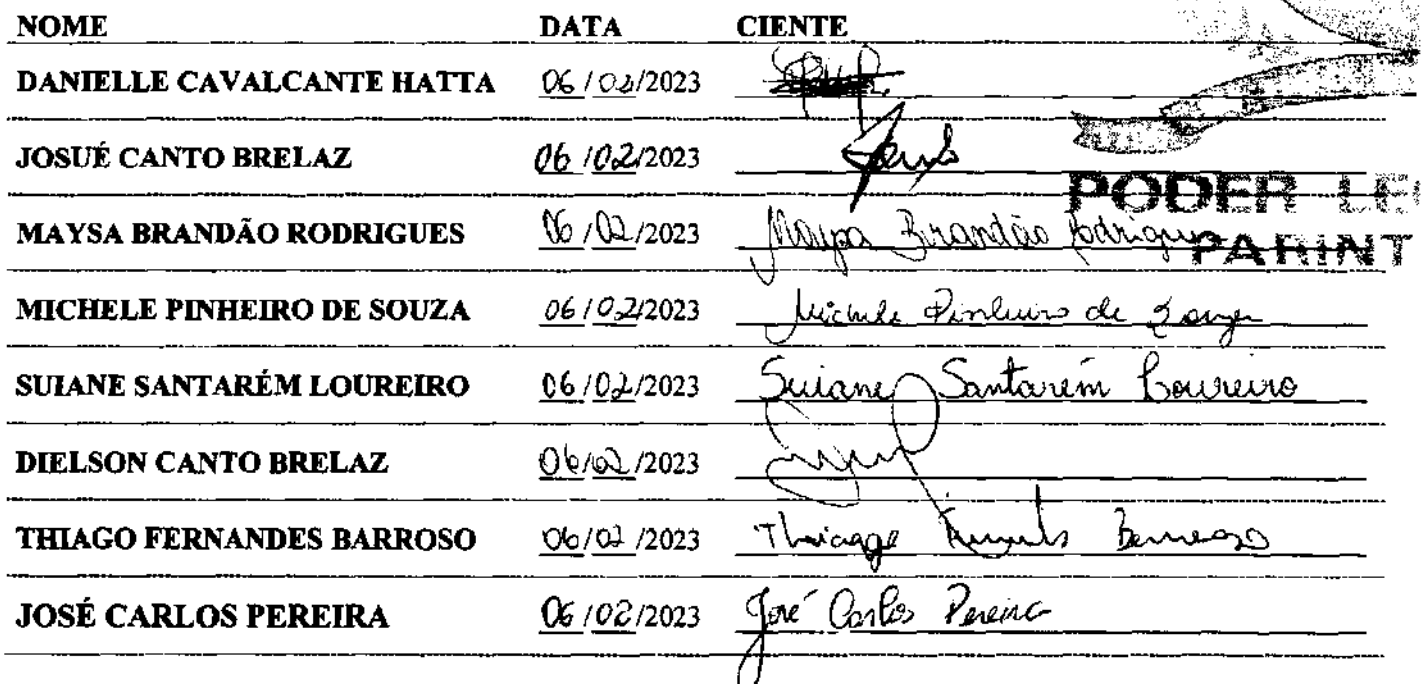 NOME DATA CIENTE
DANIELLE CAVALCANTE HATTA 06/02/2023
JOSUÉ CANTO BRELAZ 06/02/2023
PODER
MAYSA BRANDÃO RODRIGUES 06/02/2023 Maysa Brandão Rodrigues
PARINT
MICHELE PINHEIRO DE SOUZA 06/02/2023 Michele Pinheiro de Souza
SUIANE SANTARÉM LOUREIRO 06/02/2023 Suiane Santarém Loureiro
DIELSON CANTO BRELAZ 06/02/2023
THIAGO FERNANDES BARROSO 06/02/2023 Thiago Fernandes Barroso
JOSÉ CARLOS PEREIRA 06/02/2023 José Carlos Pereira